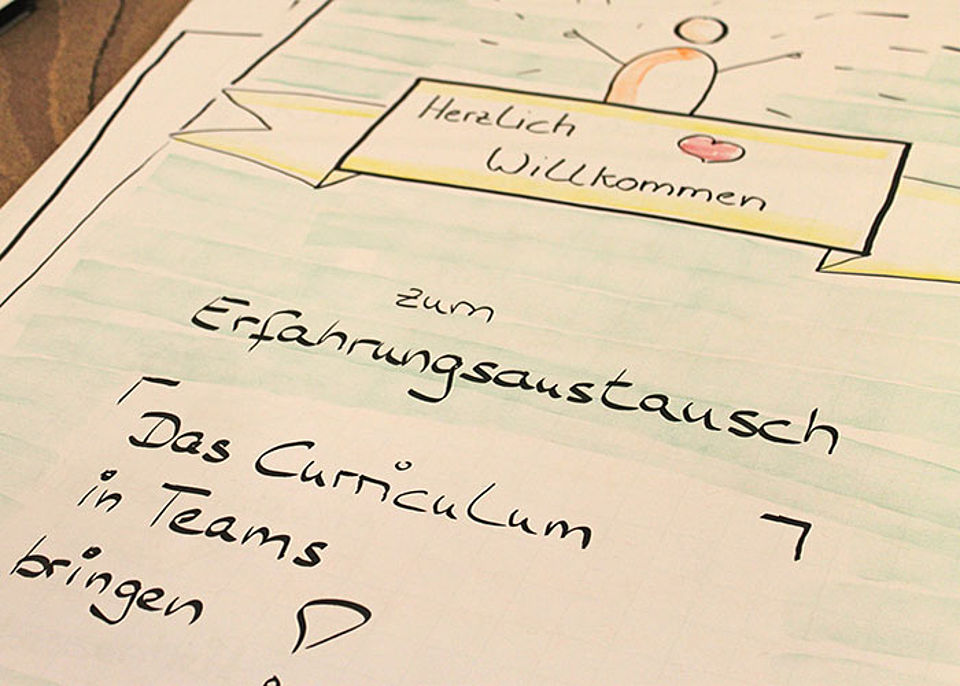 Herzlich
Willkommen
zum
Erfahrungsaustausch
Das Curriculum
in Teams
bringen